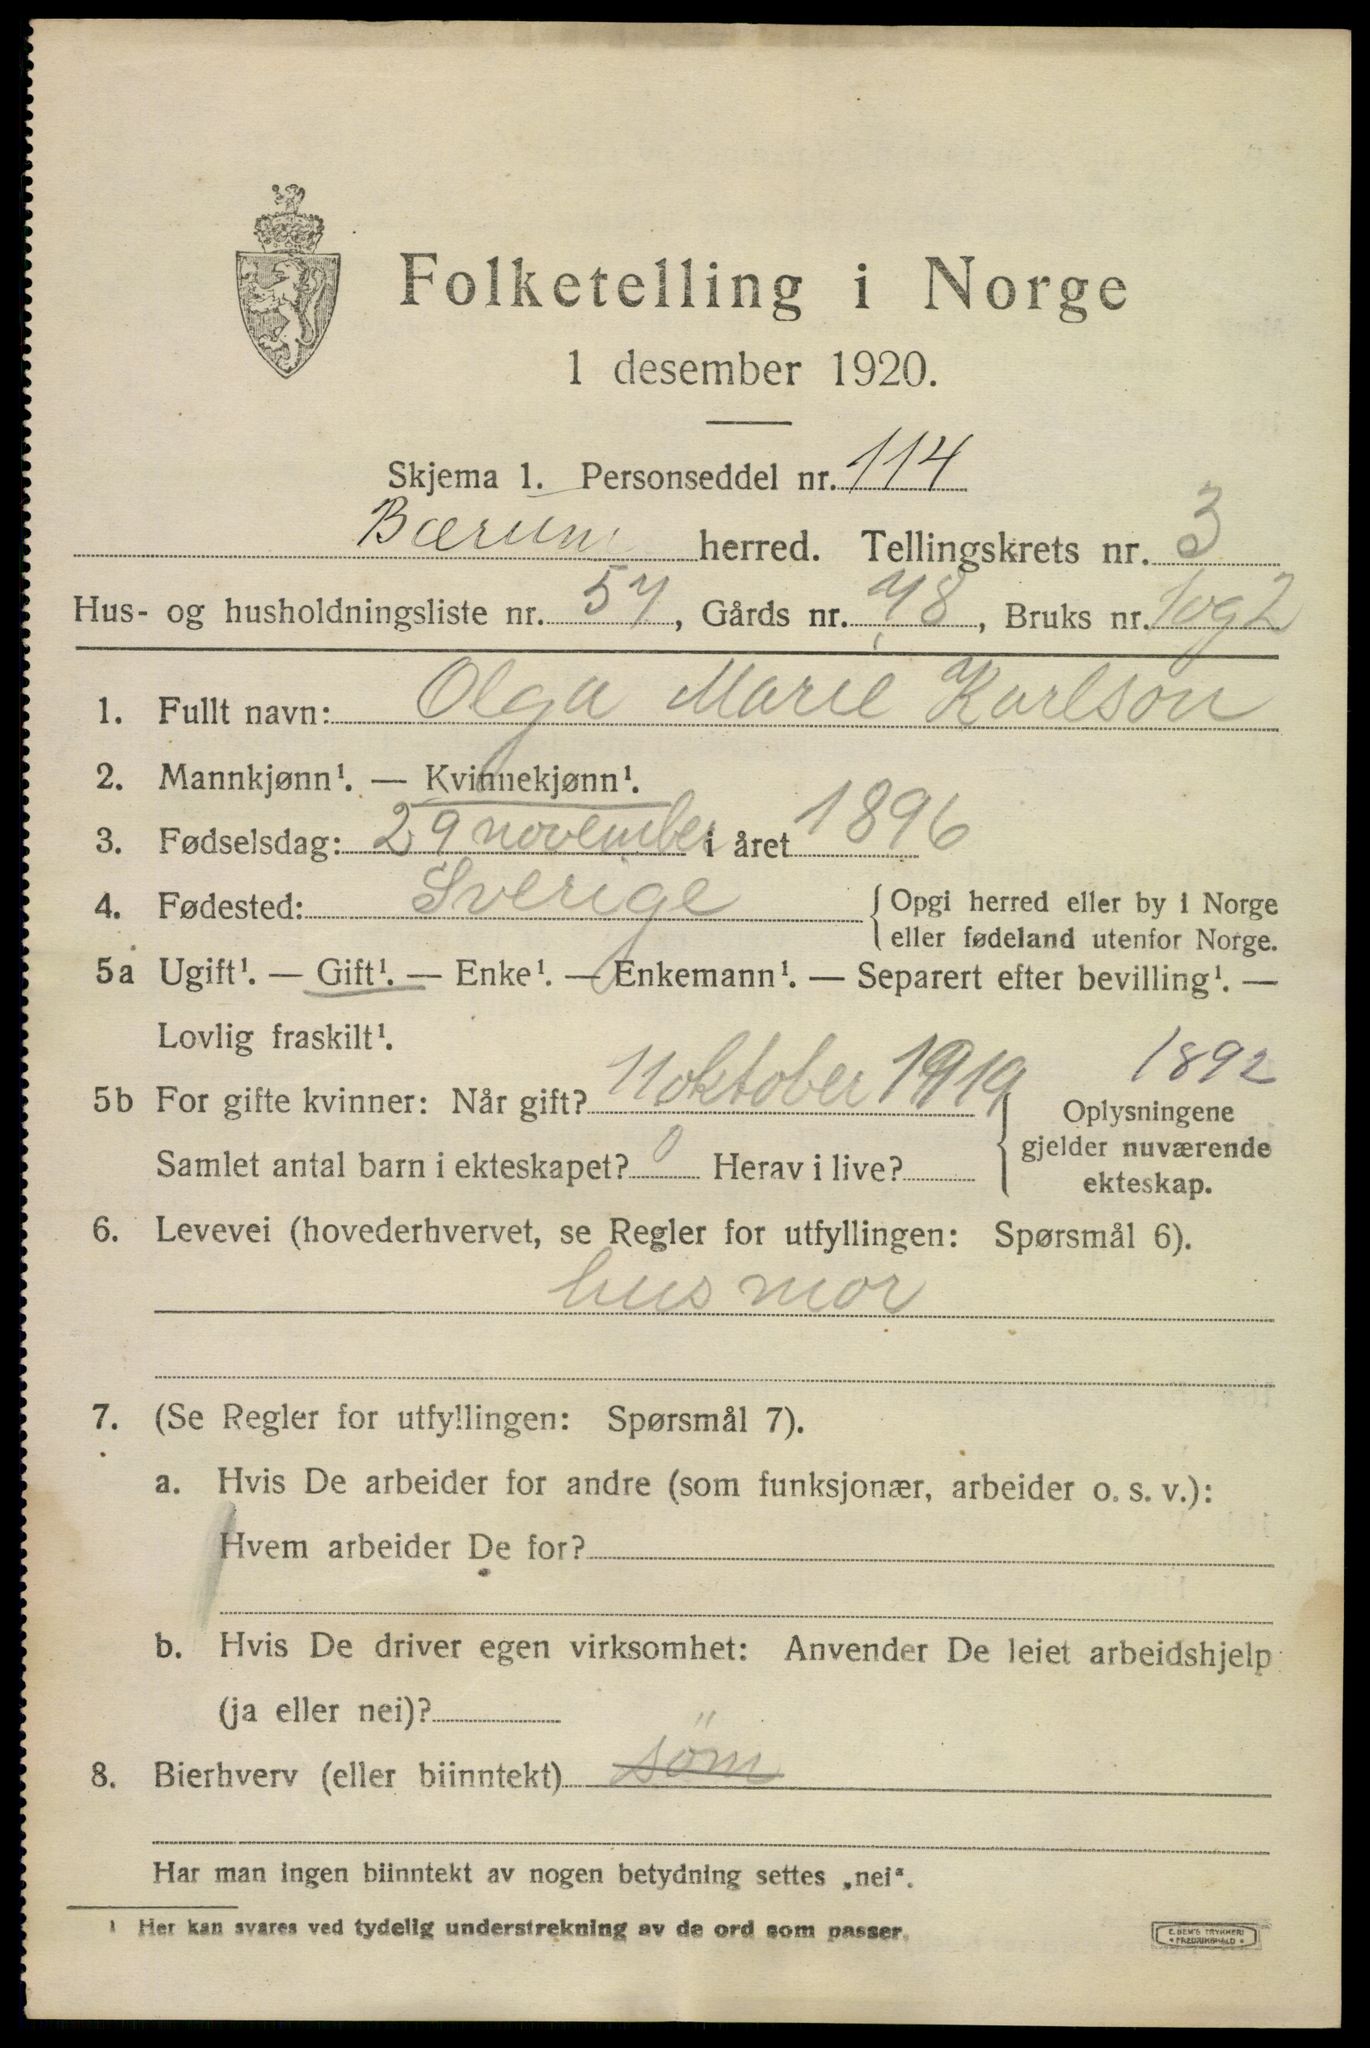 Folketelling i Norge
1 desember 1920.
Skjema 1. Personseddel nr. 114
Bærum herred. Tellingskrets nr. 3
Hus- og husholdningsliste nr. 57, Gårds nr. 78, Bruks nr. 1og2
1. Fullt navn: Olga Marie Karlson
2. Mannkjønn¹. — Kvinnekjønn¹.
3. Fødselsdag: 29 november i året 1896
4. Fødested: Sverige { Opgi herred eller by i Norge
eller fødeland utenfor Norge.
5a Ugift¹. — Gift¹. — Enke¹. — Enkemann¹. — Separert efter bevilling¹. —
Lovlig fraskilt¹.
1892
5b For gifte kvinner: Når gift? 11 oktober 1919
Samlet antal barn i ekteskapet? 0 Herav i live?
Oplysningene
gjelder nuværende
ekteskap.
6. Levevei (hovederhvervet, se Regler for utfyllingen: Spørsmål 6).
husmor
7. (Se Regler for utfyllingen: Spørsmål 7).
a. Hvis De arbeider for andre (som funksjonær, arbeider o. s. v.):
Hvem arbeider De for?
b. Hvis De driver egen virksomhet: Anvender De leiet arbeidshjelp
(ja eller nei)?
8. Bierhverv (eller biinntekt) söm
Har man ingen biinntekt av nogen betydning settes „nei".
¹ Her kan svares ved tydelig understrekning av de ord som passer.
E. SEM'S TRYKKERI
FREDRIKSHALD